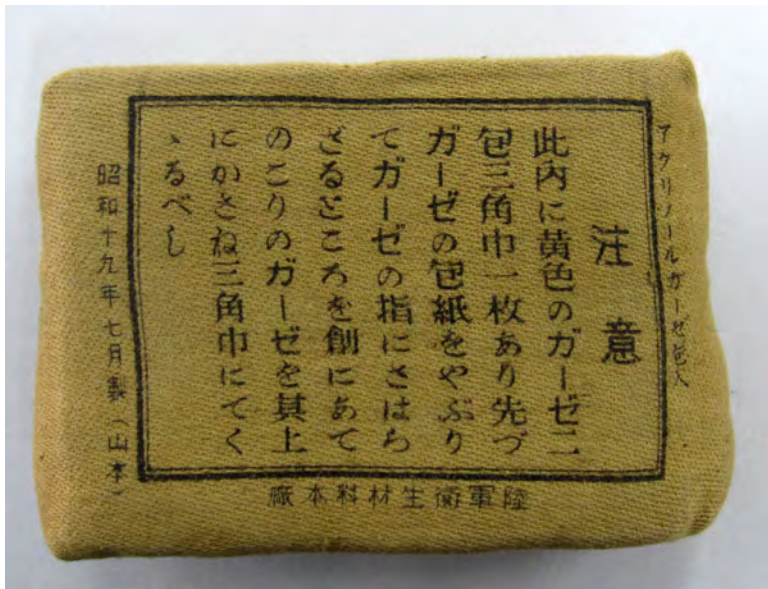 アクリノールガーゼ包入
注意
此内に黄色のガーゼ二
包三角巾一枚あり先づ
ガーゼの包紙をやぶり
てガーゼの指にさはら
ざるところを創にあて
のこりのガーゼを其上
にかさね三角巾にてく
ゝるべし
昭和十九年七月製（山本）
陸軍衛生材料本廠